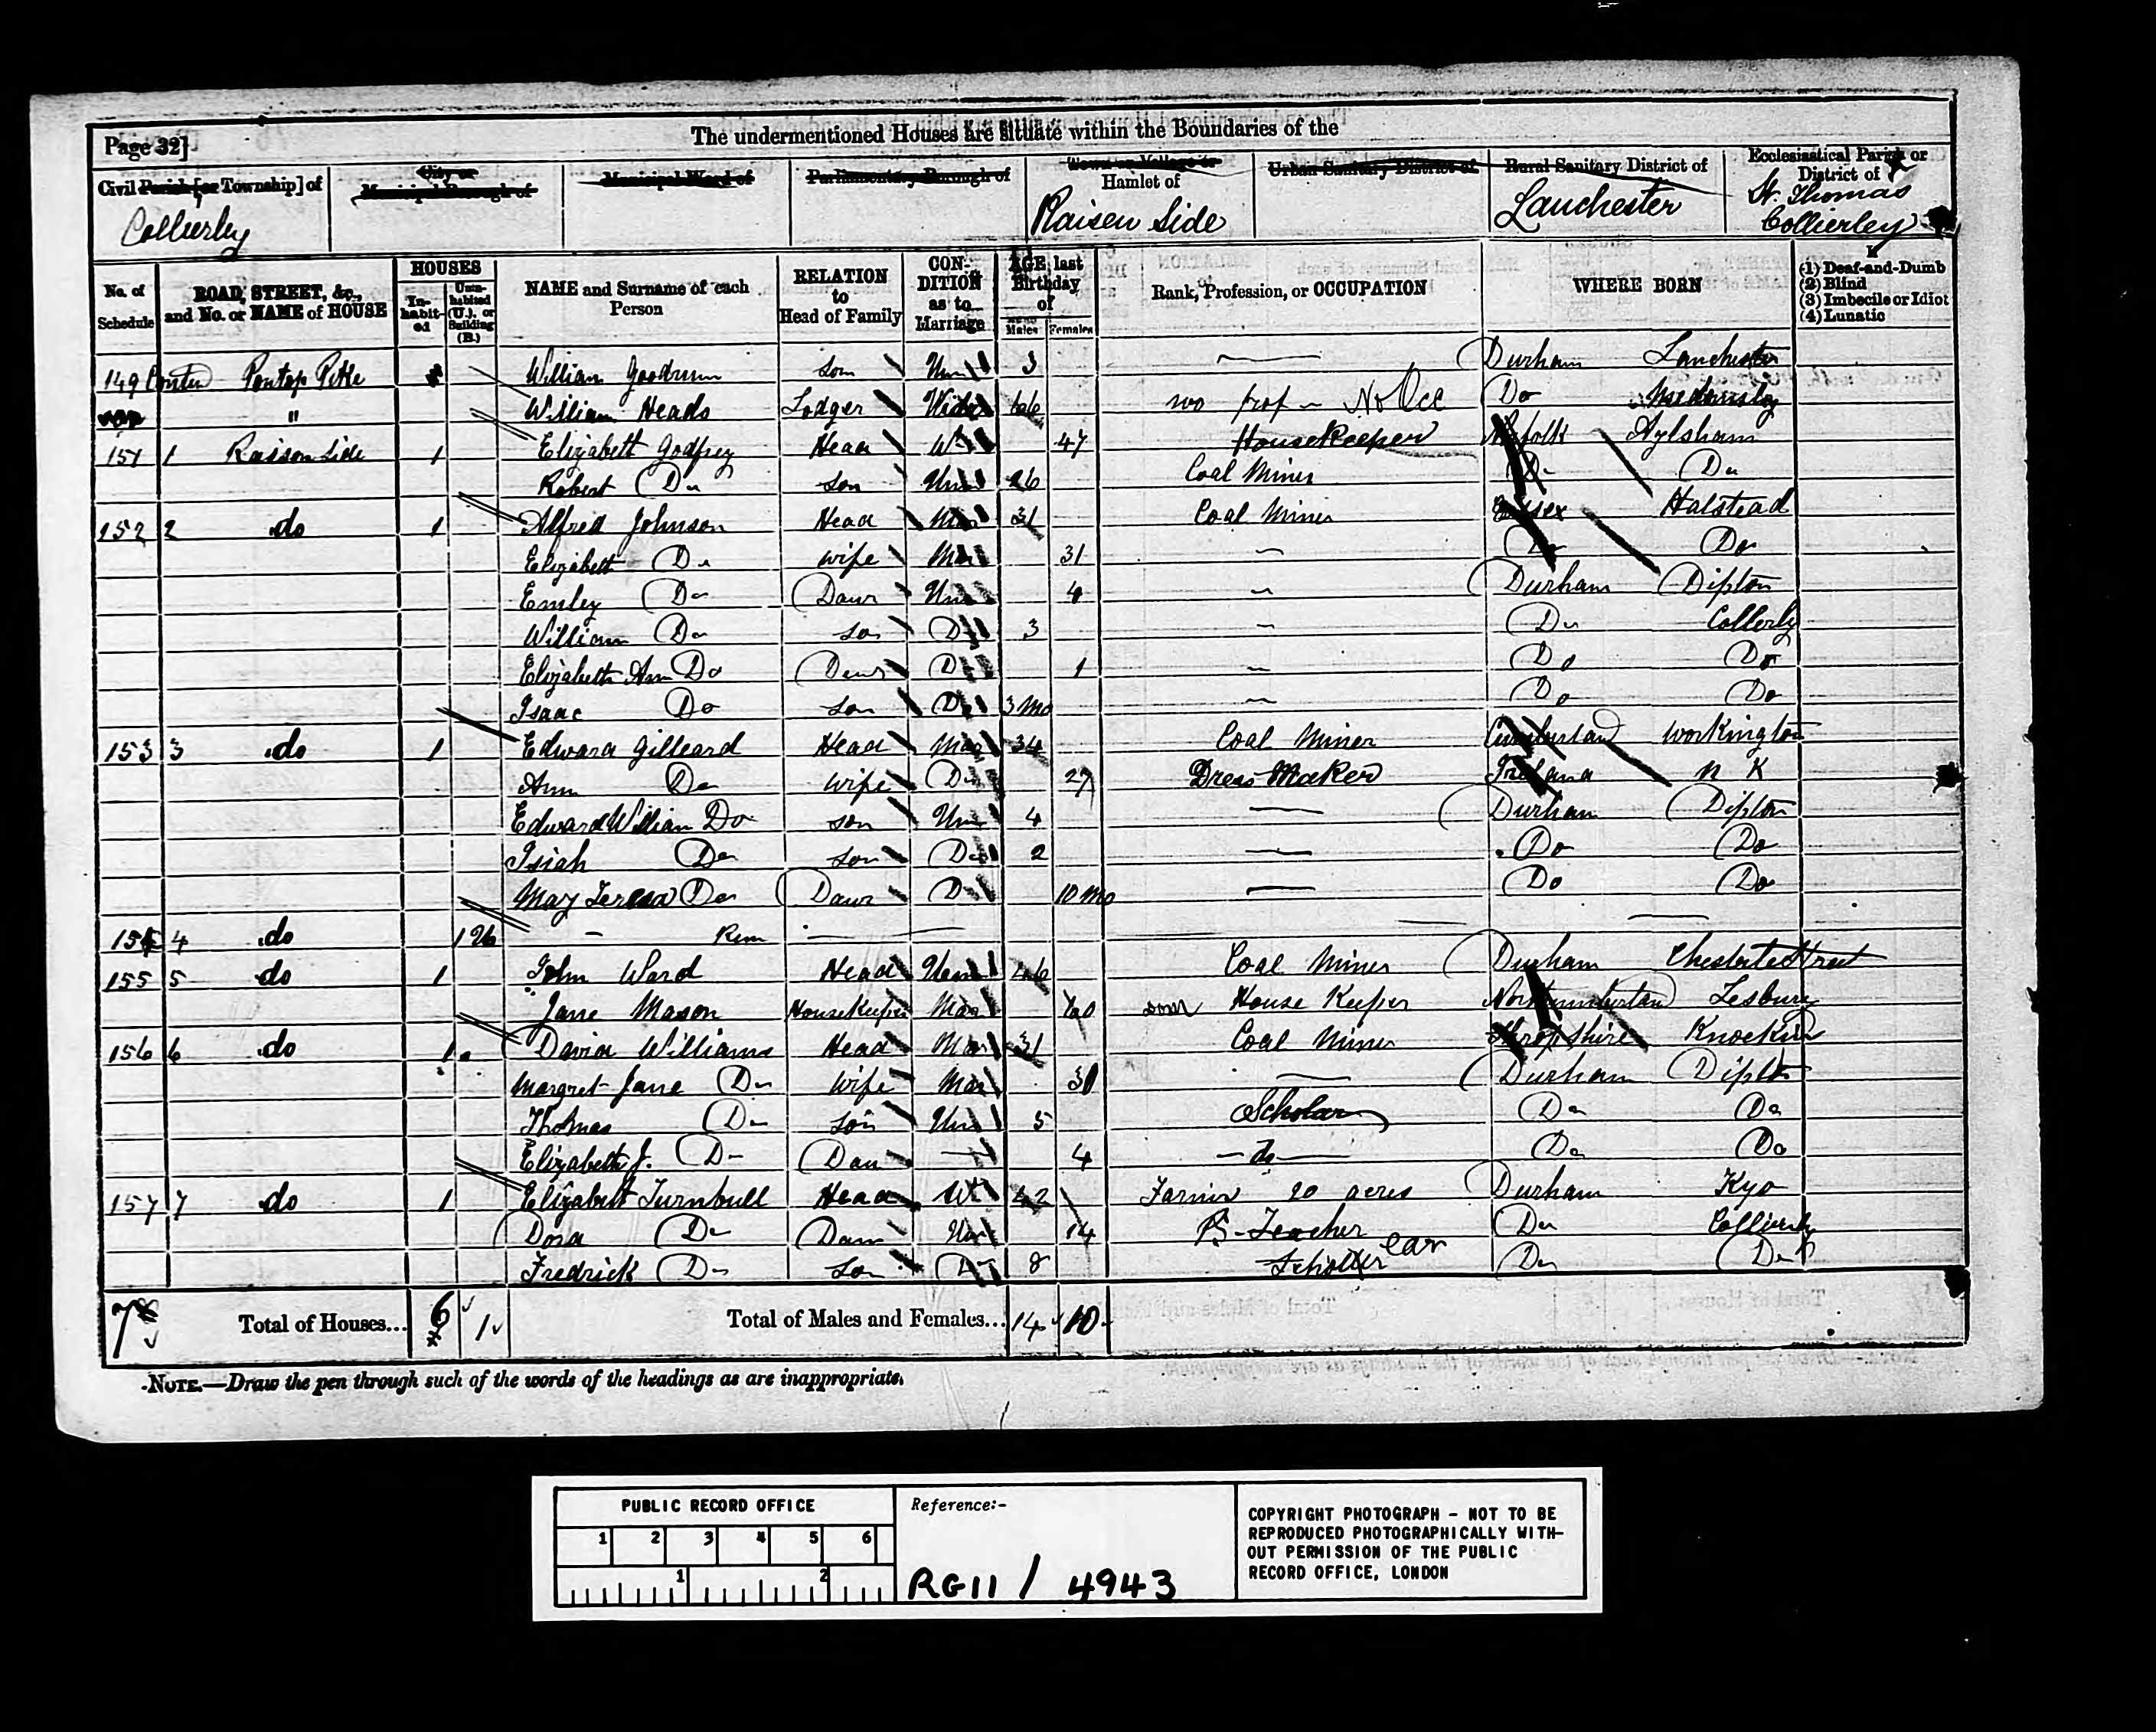 Page 32]
The undermentioned Houses are situate within the Boundaries of the
Civil Parish [or Township] of
Collierley
City or
Municipal Borough of
Municipal Ward of
Parliamentary Borough of
Town or Village or
Hamlet of
Raisen Side
Urban Sanitary District of
Rural Sanitary District of
Lanchester
Ecclesiastical Parish or
District of
St. Thomas
Collierley
No. of Schedule
ROAD, STREET, &c., and No. or NAME of HOUSE
HOUSES
In-habit-ed
Unin-habited (U.), or Building (B.)
NAME and Surname of each Person
RELATION to Head of Family
CON-DITION as to Marriage
AGE last Birthday of
Males Females
Rank, Profession, or OCCUPATION
WHERE BORN
If
(1) Deaf-and-Dumb
(2) Blind
(3) Imbecile or Idiot
(4) Lunatic
149 Pontop Pike William Goodrum Son Unm 3 Durham Lanchester
" William Heads Lodger Widr 66 no prof - No Occ Do Medomsley
151 1 Raison Side 1 Elizabeth Godfrey Head W 47 Housekeeper Norfolk Aylsham
Robert Do Son Unm 26 Coal Miner Do Do
152 2 do 1 Alfred Johnson Head Mar 31 Coal Miner Essex Halstead
Elizabeth Do Wife Mar 31 Do Do
Emley Do Daur Unm 4 Durham Dipton
William Do Son Do 3 Do Collerly
Elizabeth Ann Do Daur Do 1 Do Do
Isaac Do Son Do 3 Mo Do Do
153 3 do 1 Edward Gilleard Head Mar 34 Coal Miner Cumberland Workington
Ann Do Wife Do 27 Dress Maker Ireland N K
Edward William Do Son Unm 4 Durham Dipton
Isiah Do Son Do 2 Do Do
Mary Teresa Do Daur Do 10 Mo Do Do
154 4 do 1
155 5 do 1 John Ward Head Unm 46 Coal Miner Durham Chester le Street
Jane Mason HouseKeeper Mar 60 House Keeper Northumberland Lesbury
156 6 do 1 David Williams Head Mar 31 Coal Miner Shropshire Knockin
Margret Jane Do Wife Mar 31 Durham Dipton
Thomas Do Son Unm 5 Scholar Do Do
Elizabeth J. Do Dau 4 do Do Do
157 7 do 1 Elizabeth Turnbull Head W 42 Farmer 20 acres Durham Kyo
Dora Do Daur Unm 14 P.S-Teacher Do Collierly
Fredrick Do Son Do 8 Scholler ear Do Do
7 Total of Houses... 6 1 Total of Males and Females... 14 10
NOTE.—Draw the pen through such of the words of the headings as are inappropriate.
PUBLIC RECORD OFFICE
1 2 3 4 5 6
1 2
Reference:-
RG11 / 4943
COPYRIGHT PHOTOGRAPH - NOT TO BE
REPRODUCED PHOTOGRAPHICALLY WITH-
OUT PERMISSION OF THE PUBLIC
RECORD OFFICE, LONDON